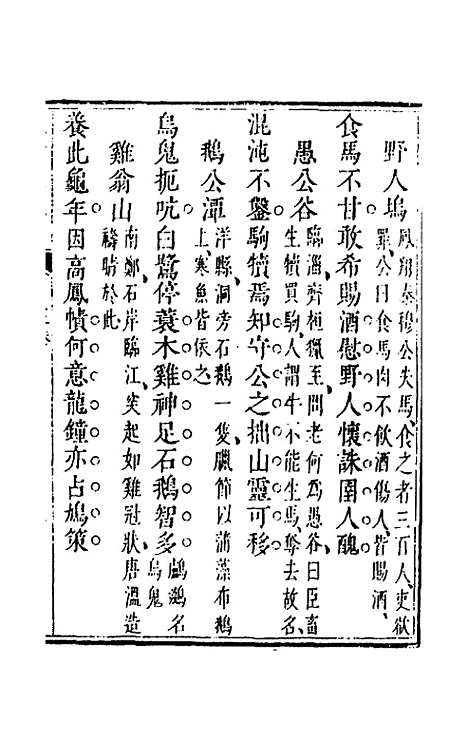 野人塢鳳翔秦穆公失馬、食之者三百人、吏獄
罪、公曰食馬肉不飲酒傷人、皆賜酒、
食馬不甘敢希賜酒慰野人懷誅圉人醜
愚公谷臨淄、齊桓獵至、問老何爲愚谷、曰臣畜
生犢買駒、人謂牛不能生馬、奪去故名、
混沌不鑿駒犢焉知守公之拙山靈可移
鵝公潭洋縣、洞旁石鵝一隻、臘節以蒲藻布鵝
上、寒魚皆依之、
烏鬼扼吭白鷺停蓑木雞神足石鵝智多鸕鶿名
烏鬼
雞翁山南鄭、石岸臨江、突起如雞冠狀、唐溫造
禱晴於此
養此龜年因高鳳幘何意龍鐘亦占鳩策